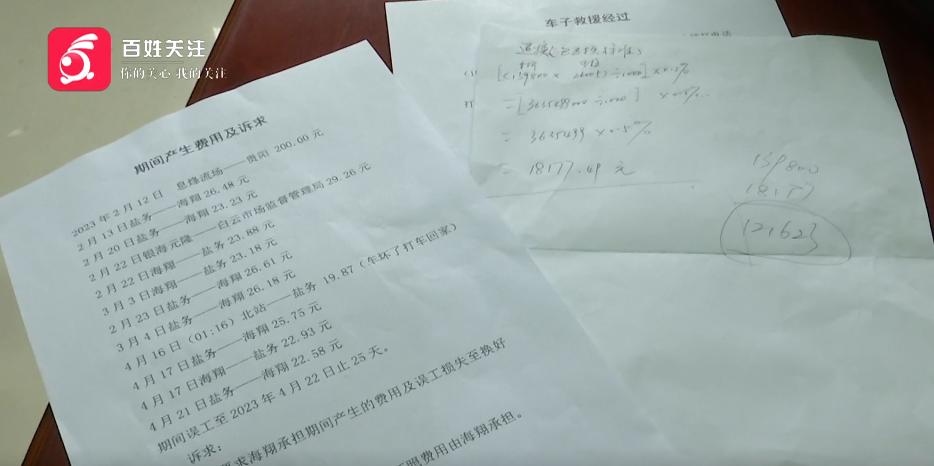 百姓关注
你的关心·我的关注
期间产生费用及诉求
2023年2月12日 息烽流场——贵阳 200.00元
2月13日盐务——海翔26.48元
2月20日盐务——海翔23.23元
2月22日银海元隆——白云市场监督管理局29.26元
2月22日海翔——盐务23.88元
3月3日海翔——盐务23.18元
2月23日盐务——海翔26.61元
3月4日盐务——海翔26.18元
4月16日(01:16)北站——盐务 19.87(车坏了打车回家)
4月17日盐务——海翔25.75元
4月17日海翔——盐务22.93元
4月21日盐务——海翔22.58元
期间误工至2023年4月22日止25天。
诉求:
求海翔承担期间产生的费用及误工损失至换好
照费用由海翔承担。
车子救援经过
÷1000] ×0.5%
=[ ÷1000] ×0.5%
= ×0.5%
= 18177.49 元
139800
18177
121623